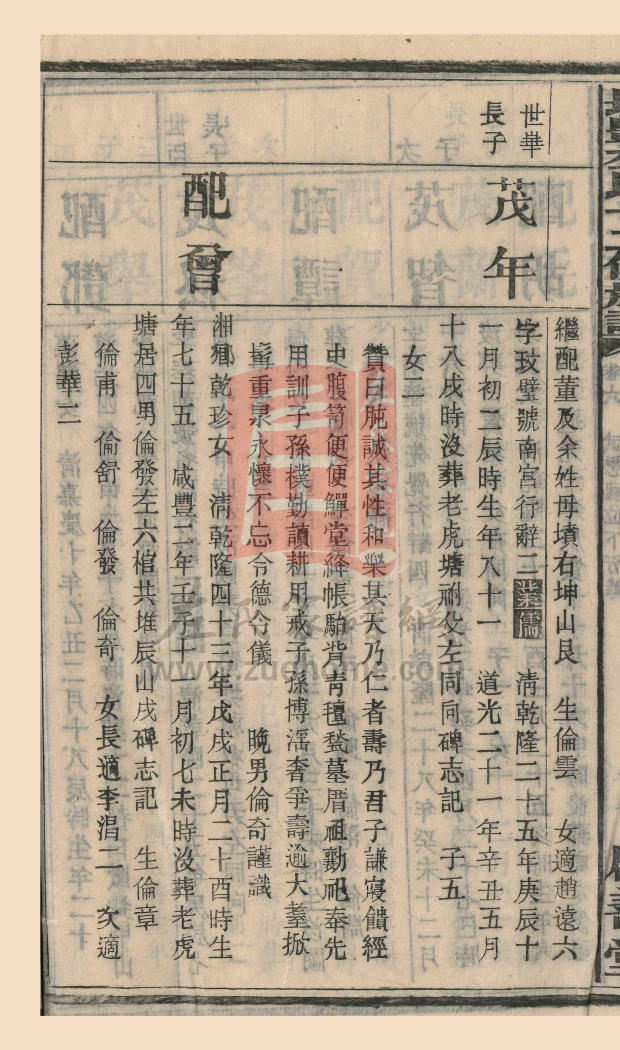 繼配董及余姓母墳右坤山艮 生倫雲 女適趙遠六
世華
長子
茂年
字玟璧號南宮行辭二業儒 清乾隆二十五年庚辰十
一月初二辰時生年八十一 道光二十一年辛丑五月
十八戌時沒葬老虎塘祔父左同向碑志記 子五
女二
贊曰肫誠其性和樂其天乃仁者壽乃君子謙寢饋經
史腹笥便便鱓堂絳帳駘背靑氊甃墓厝祖勷祀奉先
用訓子孫樸勤讀耕用戒子孫博滛奢爭壽逾大耋掀
髯重泉永懷不忘令德令儀 晚男倫奇謹識
配曾
湘鄉乾珍女 淸乾隆四十三年戊戌正月二十酉時生
年七十五 咸豐二年壬子十一月初七未時沒葬老虎
塘居四男倫發左六棺共堆辰山戌碑志記 生倫章
倫甫 倫舒 倫發 倫奇 女長適李淐二 次適
彭華三
卷六
善堂
左氏家譜網
www.zuehome.com